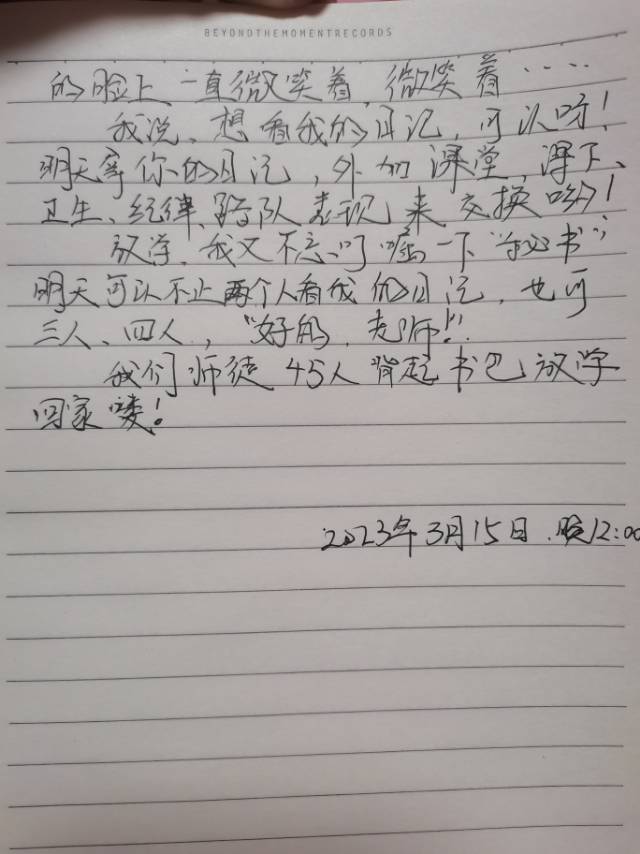 BEYONDTHEMOMENTRECORDS
的脸上一直微笑着,微笑着……
我说、想看我的日记,可以呀!
明天拿你的日记,外加课堂,课下、
卫生、纪律、路队表现来交换哟!
放学,我又不忘叮嘱一下"秘书";
明天可以不止两个人看我的日记,也可
三人、四人,"好的,老师!"
我们师徒45人背起书包放学
回家喽!
2023年3月15日.晚12:00